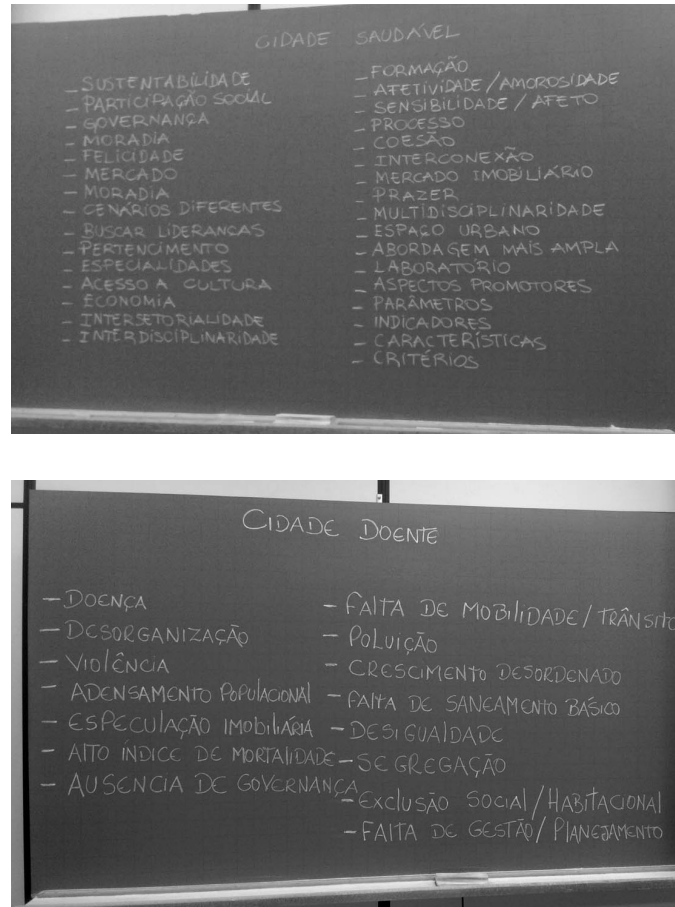 CIDADE SAUDÁVEL
- SUSTENTABILIDADE
- PARTICIPAÇÃO SOCIAL
- GOVERNANÇA
- MORADIA
- FELICIDADE
- MERCADO
- MORADIA
- CENÁRIOS DIFERENTES
- BUSCAR LIDERANCAS
- PERTENCIMENTO
- ESPECIALIDADES
- ACESSO A CULTURA
- ECONOMIA
- INTERSETORIALIDADE
- INTERDISCIPLINARIDADE
- FORMAÇÃO
- AFETIVIDADE/AMOROSIDADE
- SENSIBILIDADE/AFETO
- PROCESSO
- COESÃO
- INTERCONEXÃO
- MERCADO IMOBILIÁRIO
- PRAZER
- MULTIDISCIPLINARIDADE
- ESPAÇO URBANO
- ABORDAGEM MAIS AMPLA
- LABORATÓRIO
- ASPECTOS PROMOTORES
- PARÂMETROS
- INDICADORES
- CARACTERÍSTICAS
- CRITÉRIOS
CIDADE DOENTE
- DOENÇA
- DESORGANIZAÇÃO
- VIOLÊNCIA
- ADENSAMENTO POPULACIONAL
- ESPECULAÇÃO IMOBILIÁRIA
- ALTO ÍNDICE DE MORTALIDADE
- AUSENCIA DE GOVERNANÇA
- FALTA DE MOBILIDADE/TRÂNSITO
- POLUIÇÃO
- CRESCIMENTO DESORDENADO
- FALTA DE SANEAMENTO BÁSICO
- DESIGUALDADE
- SEGREGAÇÃO
- EXCLUSÃO SOCIAL/HABITACIONAL
- FALTA DE GESTÃO/PLANEJAMENTO